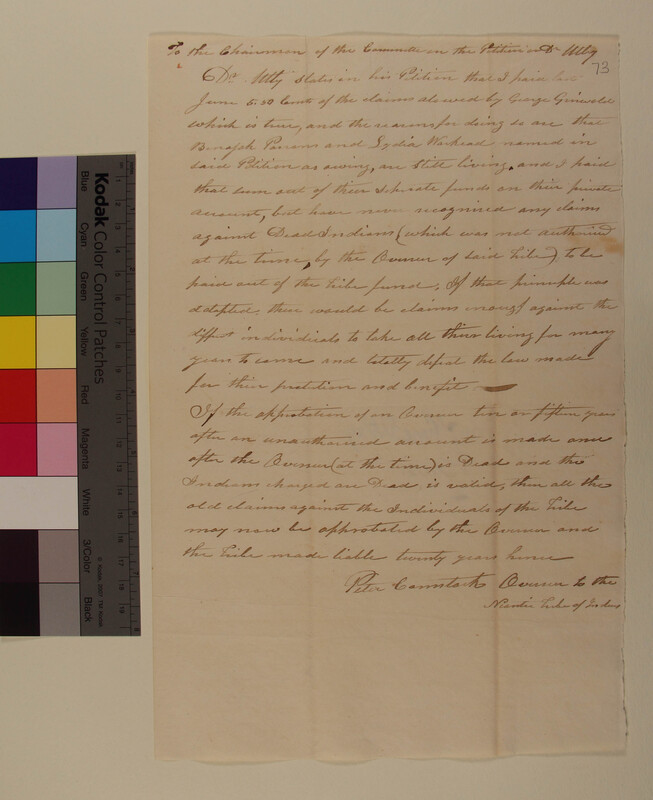 To the Chairman of the Committee on the Petition on Dr Utly
73
Dr. Utly states in his Petition that I paid
June 5.50 Cents of the claims alowed by George Griswold
which is true, and the reasons for doing so are that
Benajah Parsons and Lydia Waukead named in
said Petition as owing, are still living, and I paid
that sum out of their separate funds on their private
account, but have never recognised any claims
against Dead Indians (which was not authorised
at the time, by the Overseer of said Tribe) to be
paid out of the Tribe fund; If that principle was
adopted, there would be claims enough against the
different individuals to take all their living for many
years to come and totally defeat the law made
for their protection and benefit
If the approbation of an Overseer ten or fifteen years
after an unauthorised account is made and
after the Overseer (at the time) is Dead and the
Indians charged are Dead is valid, then all the
old claims against the Individuals of the Tribe
may now be approbated by the Overseer and
the Tribe made liable twenty years hence
Peter Comstock Overseer to the
Niantic Tribe of Indians
Kodak Color Control Patches
Blue
Cyan
Green
Yellow
Red
Magenta
White
3/Color
Black
© Kodak, 2007. TM: Kodak